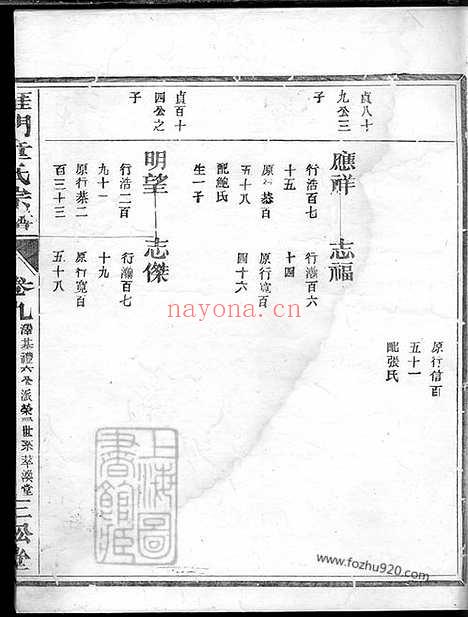 原行信百
五十一
配張氏
貞八十
九公三
子
應祥
志福
行浩百七
十五
原行恭百
五十八
配鮑氏
生一子
行瀚百六
十四
原行寬百
四十六
貞百十
四公之
子
明望
志傑
行浩二百
九十一
原行恭二
百三十三
行瀚百七
十九
原行寬百
五十八
門童氏宗譜
卷九
三松堂
上海圖
書館藏
nayona.cn
www.fozhu920.com